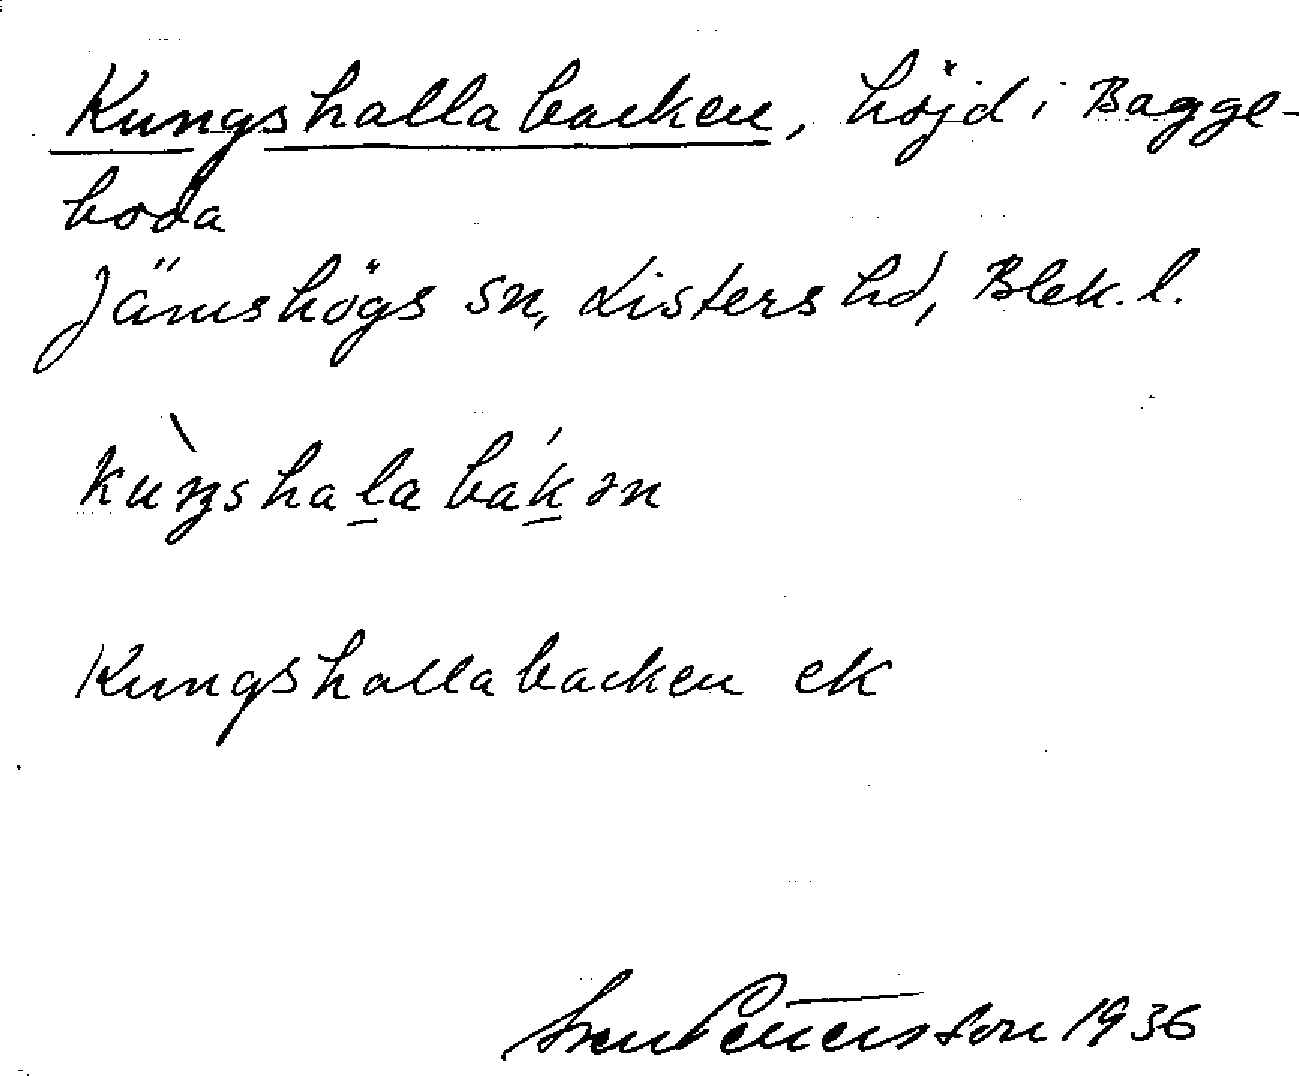 Kungshallabacken, höjd i Bagge-
boda
Jämshögs sn, Listers hd, Blek. l.
kùŋshala bákən
Kungshallabacken ek
Sven Pettersson 1936